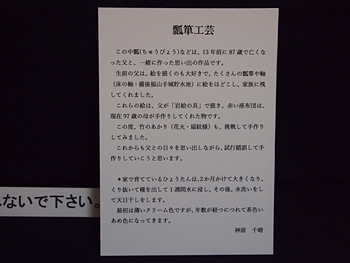 瓢箪工芸
この中瓢(ちゅうびょう)などは、13年前に87歳で亡くな
った父と、一緒に作った思い出の作品です。
生前の父は、絵を描くのも大好きで、たくさんの瓢箪や軸
(床の軸:備後福山手城貯水池)に絵をほどこし、家族に残
してくれました。
これらの絵は、父が「岩絵の具」で描き、赤い座布団は、
現在97歳の母が手作りしてくれた物です。
この度、竹のあかり(花火・扇紋様)も、挑戦して手作り
してみました。
これからも父との日々を思い出しながら、試行錯誤して手
作りしていこうと思います。
*家で育てているひょうたんは、2か月かけて大きくなり、
くり抜いて種を出して1週間水に浸し、その後、水洗いをし
て天日干しをします。
最初は薄いクリーム色ですが、年数が経つにつれて茶色い
あめ色になってきます。
神原 千晴
ないで下さい。